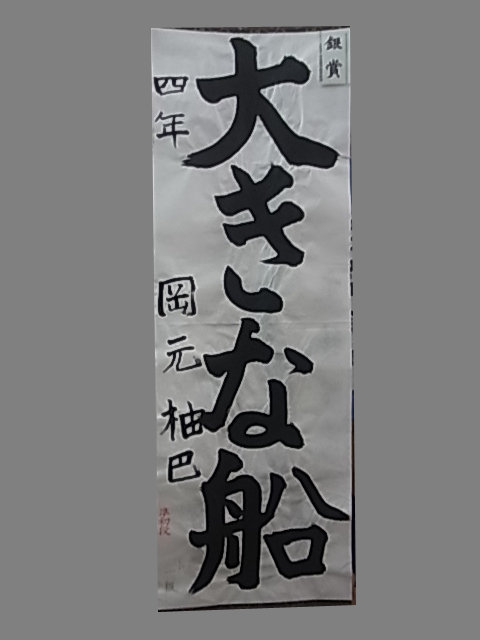 銀賞
大きな船
四年 岡元柚巴
準初段